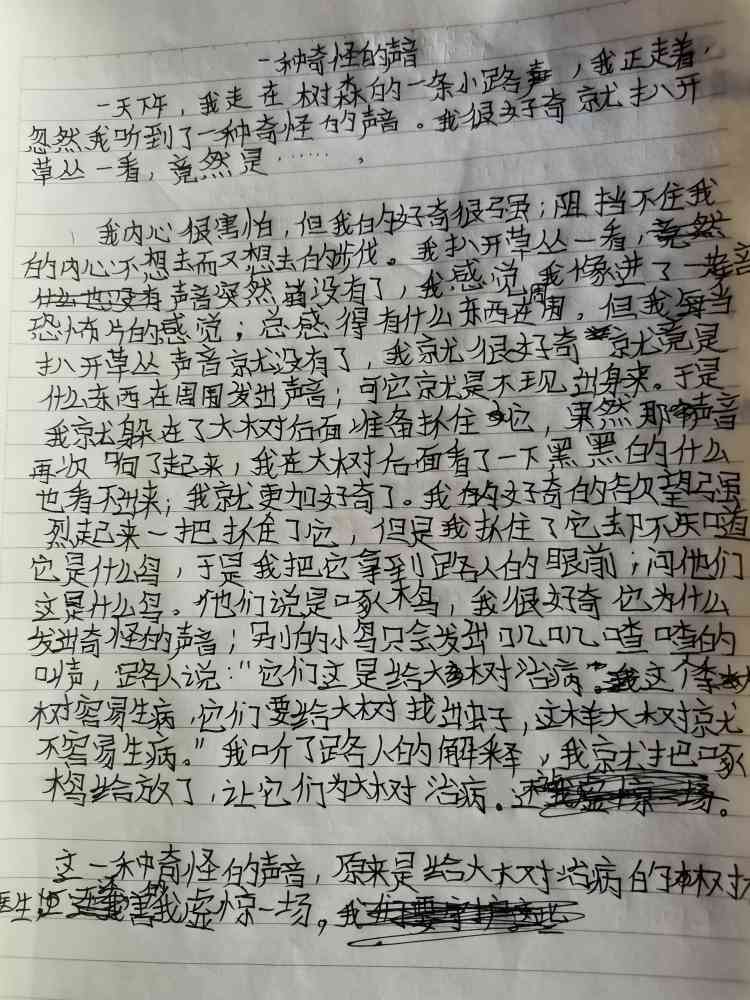 一种奇怪的声音
一天下午，我走在树森的一条小路，我正走着，
忽然我听到了一种奇怪的声音。我很好奇就扒开
草丛一看，竟然是……，
我内心很害怕，但我的好奇很强；阻挡不住我
的内心不想去而又想去的步伐。我扒开草丛一看，
声音突然消没有了，我感觉我像进了一
恐怖片的感觉；总感得有什么东西在周围，但我每当
扒开草丛声音就没有了，我就很好奇就竟是
什么东西在周围发出声音；可它就是不现出身来。于是
我就躲在了大树后面准备抓住它，果然那声音
再次响了起来，我在大树后面看了一下黑黑的什么
也看不出来；我就更加好奇了。我的好奇的欲望强
烈起来一把抓住了它，但是我抓住了它却不知道
它是什么鸟，于是我把它拿到路人的眼前；问他们
这是什么鸟。他们说是啄木鸟，我很好奇它为什么
发出奇怪的声音；别的小鸟只会发出叽叽喳喳的
叫声，路人说："它们这是给大树治病。这个季
树容易生病，它们要给大树找出虫子，这样大树就
不容易生病。"我听了路人的解释，我就把啄
木鸟给放了，让它们为大树治病。
这一种奇怪的声音，原来是给大树治病的树
医生，害我虚惊一场。